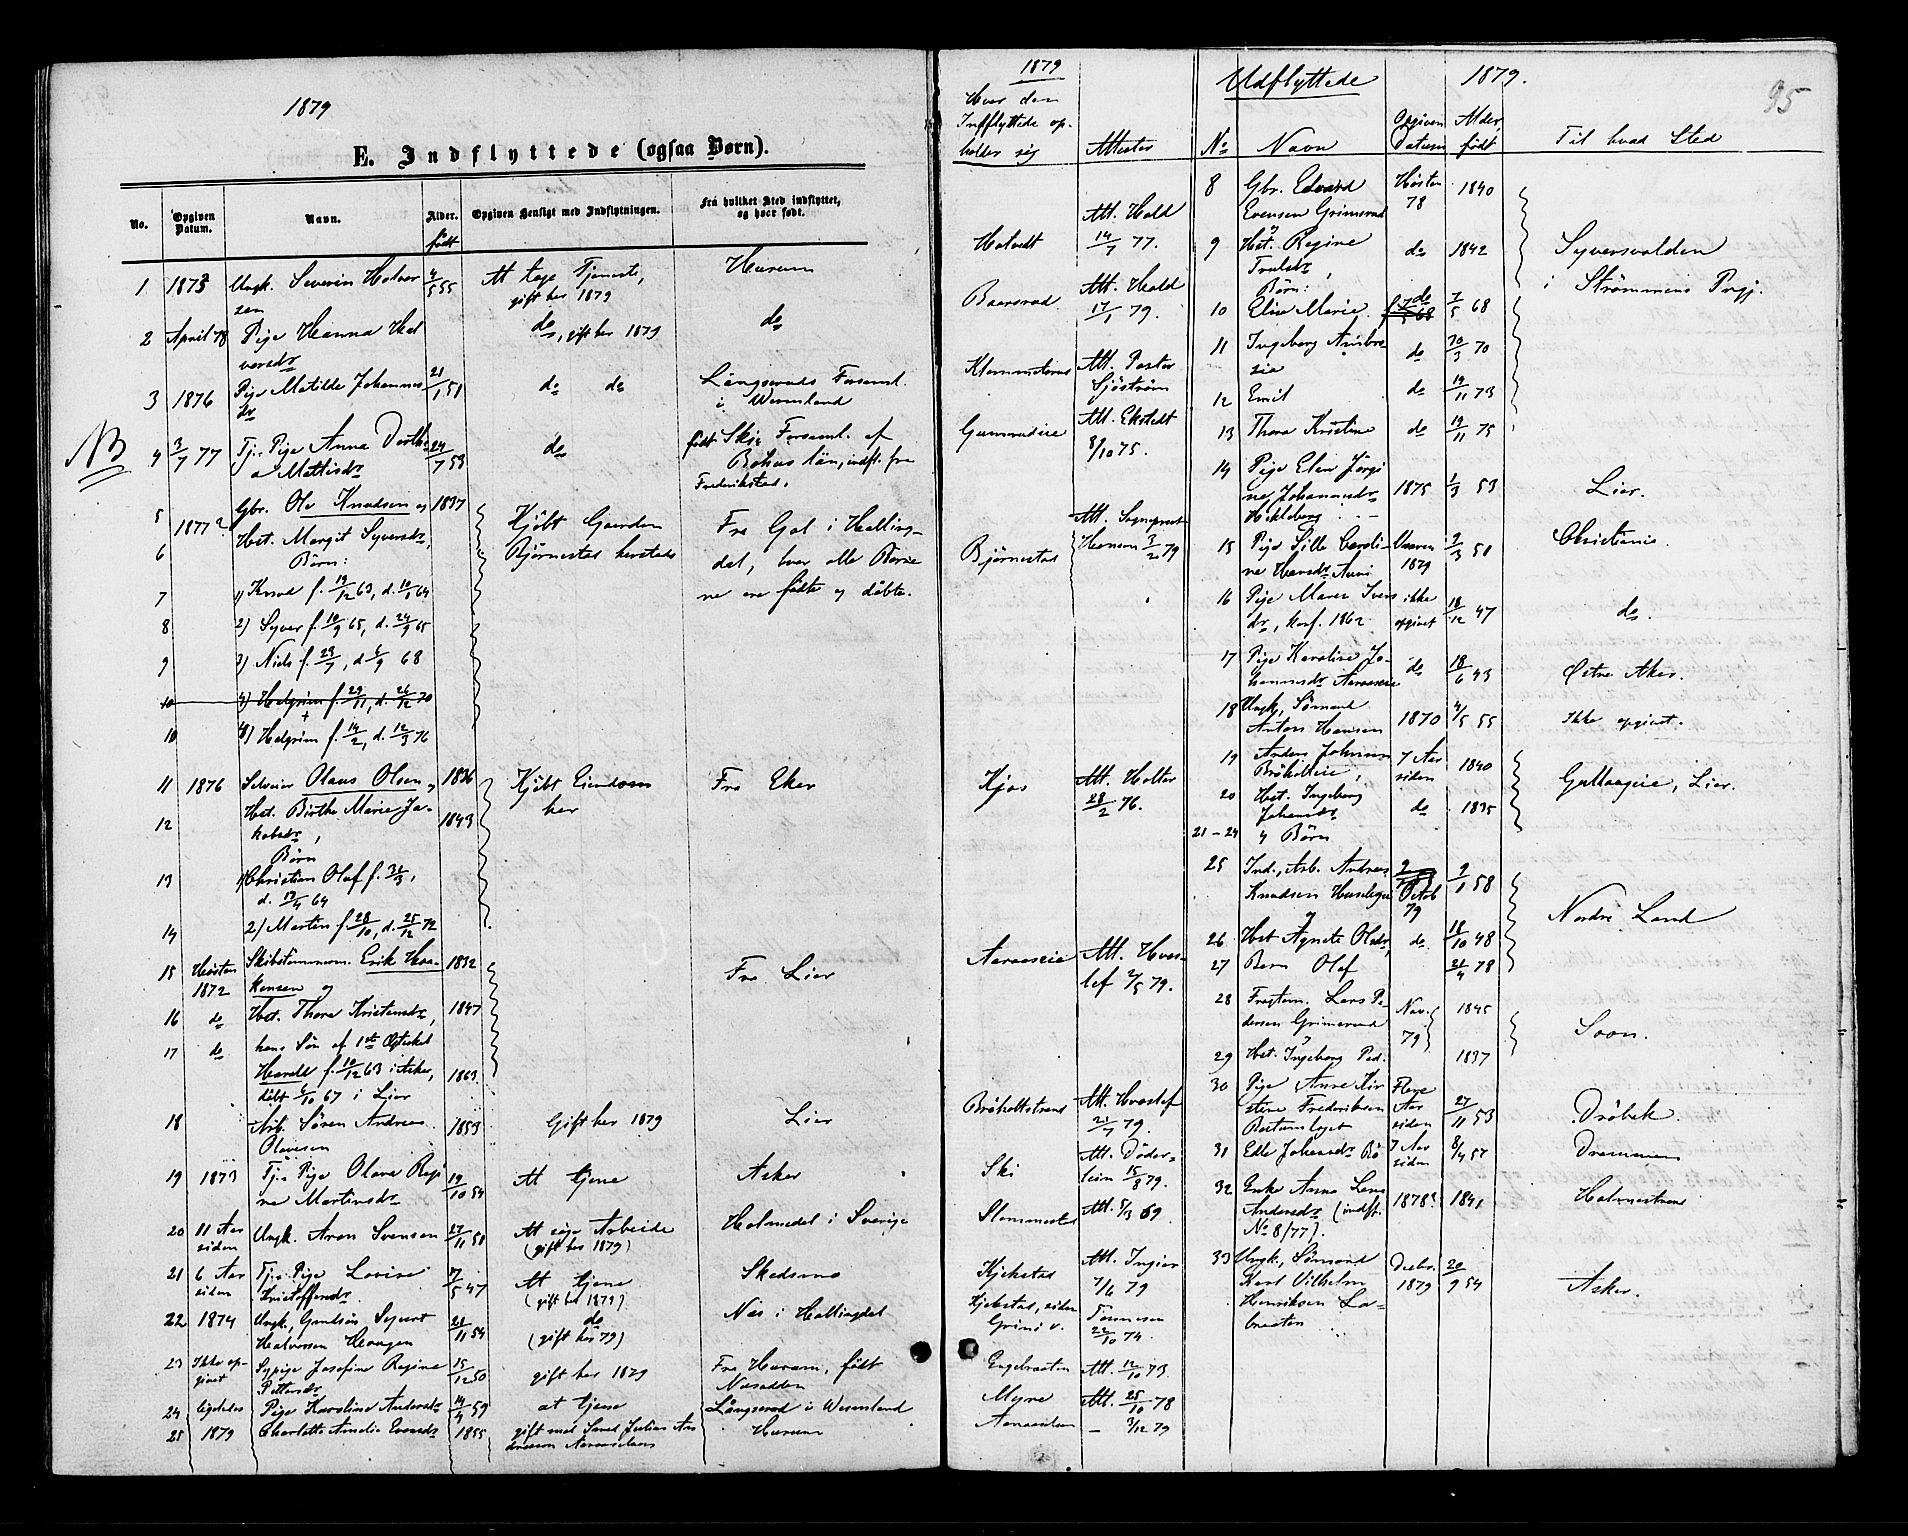 1879
E. Indflyttede (ogsaa Børn).
No.
Opgiven Datum.
Navn.
Alder.
født
Opgiven Hensigt med Indflytningen.
Fra hvilket Sted indflyttet, og hvor født.
1 1873 Ungk. Severin Halvor 4/5 55 At tage Tjeneste, Hurum
sen gift her 1879
2 April 78 Pige Hanna Hal do, gift her 1879 do
vorsdr
3 1876 Pige Matilde Johannes 21/1 51 do do Långseruds Forsaml.
dr i Wermland
NB
4 3/7 77 Tj. Pige Anna Dorthe 24/7 53 do født Skie Forsaml. af
a Mattisdr Bohus län, indfl. fra
Frederikstad.
5 1877? Gbr. Ole Knudsen og 1837 Kjøbt Gaarden Fra Gol i Halling-
6 Hst. Margit Syversdr, Bjørnestad hersteds dal, hvor alle Børne
Børn: ne ere fødte og døbte.
7 1) Knud f. 19/12 63, d. 10/1 64
8 2) Syver f. 10/9 65, d. 24/9 65
9 3) Niels f. 29/7, d. 6/9 68
10 4) Helgrim f. 29/11, d. 26/12 70
10 4) Helgrim f. 14/2, d. 12/3 76
11 1876 Seleier Olaus Olsen og 1836 Kjøbt Eiendom Fra Eker
12 Hst. Birthe Marie Ja- 1843 her
kobsdr,
Børn
13 1) Christian Olaf f. 31/3,
d. 17/4 64
14 2) Martin f. 28/10, d. 25/12 72
15 Høsten Skibstømmerm. Erik Haa- 1832 Fra Lier
1872 kensen og
16 do Hst. Thora Kristensdr, 1847
17 do hans Søn af 1ste Ægteskab
Harald f. 10/12 63 i Asker, 1863.
døbt 6/10 67 i Lier
18 Arb. Søren Andreas 1853 Gift her 1879 Lier
Olavesen
19 1873 Tj. Pige Olava Regi 19/10 54 At tjene Asker
ne Martinsdr
20 11 Aar Ungk. Aron Svensen 27/11 51 At søge Arbeide Holmedal i Sverige
siden (gift her 1879)
21 6 Aar Tj. Pige Lovise 7/5 47 At tjene Skedsmo
siden Kristoffersdr. (gift her 1879)
22 1874 Ungk. Syvert 21/11 54 do Næs i Hallingdal
Halvorsen Haugen (gift her 79)
23 Ikke op- Sypige Josefine Regine 15/12 50 gift her 1879 Fra Hurum, født
givet Pettersdr Næsodden
24 ligeledes Pige Karoline Andersdr 14/4 59 at tjene Långserud i Wermland
25 1879 Charlotte Amalie Evensdr 1855 gift med Julius An Hurum
dreasen
1879
Hvor den
Indflyttede op-
holder sig
Attester
Holvedt Att. Hald
14/7 77.
Baarsrud Att. Hald
17/1 79.
Att. Pastor
Sjöström
Att. Ekstedt
8/10 75.
Bjørnestad Att. Sognepræst
Hansen 3/2 79
Kjos Att. Holter
28/2 76.
Aaraaseie Att. Hvos-
lef 2/5 79.
Bråholtstrand Att. Hvoslef
21/7 79.
Ski Att. Døder-
lein 15/8 79.
Slemmestad Att. 5/3 69
Kjekstad Att. Ingier
7/6 79
Kjekstad, siden
Grini v. 22/10 74.
Engebraaten Att. 12/10 73
Myre Att. 25/10 78
— 3/12 79
Udflyttede 1879.
95
No
Navn
Opgiven Datum
Alder, født
Til hvad Sted
8 Gbr. Edvard Høsten 1840
Evensen Grimsrud 78
og
9 Hst. Regine do 1842 Syversvolden
Trulsdr, i Strømmens Prgj.
Børn:
10 Elise Marie f. 7/5 68 do 7/5 68
11 Ingeborg Ambro do 30/3 70
sia
12 Emil do 19/11 73
13 Thora Kristine do 19/11 75
14 Pige Elen Jørgi 1875 1/3 53 Lier.
ne Johannesdr
Hekleberg
15 Pige Sille Caroli- Vaaren 9/3 51 Christiania.
ne Hansdr 1879
16 Pige Maren Ivers ikke 18/12 47 do.
dr, konf. 1862 opgivet
17 Pige Karoline Jo- do 18/6 43 Østre Aker.
hannesdr Aaraaseie
18 Ungk. Sømand 1870 4/5 55 Ikke opgivet.
Anton Hansen
19 Anders Johnsen 7 Aar 1840 Gullaugeie, Lier.
Bråholteie, siden
20 Hst. Ingeborg do 1835
Johansdr
21-24 4 Børn
25 Ind., Arb. Andreas 9/1 58 Nordre Land
Knudsen Octob
og 79
26 Hst. Agnete Olsdr, do. 18/10 48
27 Barn Olaf 21/4 78
28 Lars Pe- Nov. 1845 Soon.
dersen Grimsrud 79
og
29 Hst. Ingeborg Ped. 1837
30 Pige Anne Kir Flere 27/11 53 Drøbak
stine Fredriksen Aar
siden
31 Edle Johansdr Bø 7 Aar 8/4 57 Drammen
siden
32 Enke Anna Lena 1878? 1841 Holmestrand
Andersdr (indfl.
No 8/77).
33 Ungk., Sømand Decbr. 20/9 54 Asker.
Karl Vilhelm 1879
Henriksen La-
braaten